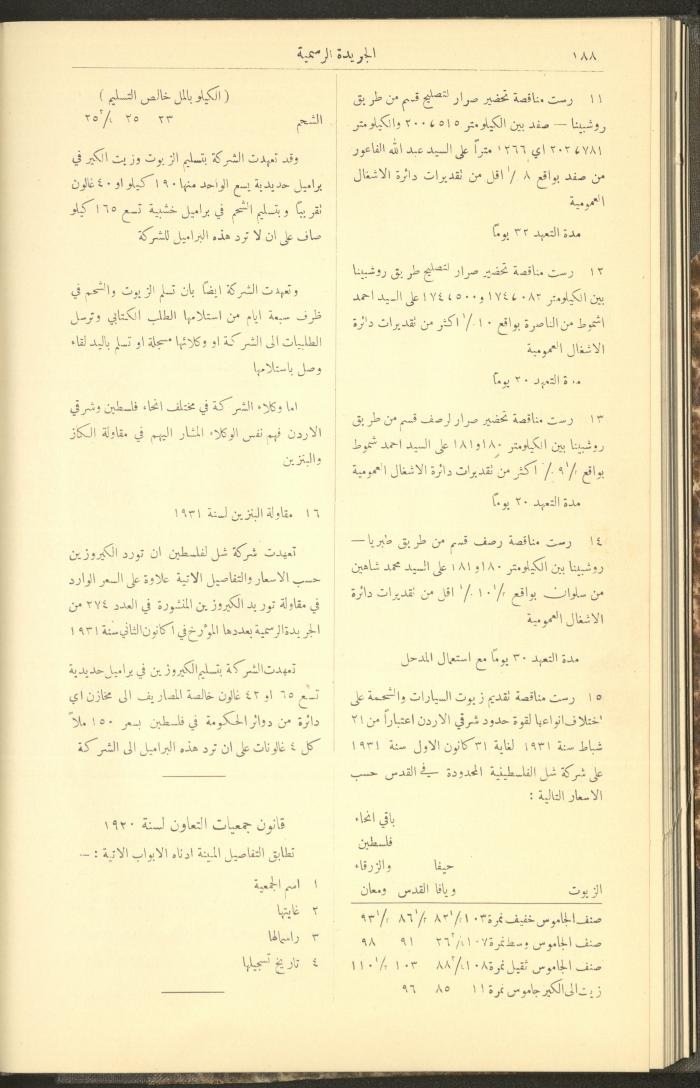 ١٨٨
الجريدة الرسمية
١١ رست مناقصة تحضير صرار لتصليح قسم من طريق
روشبينا — صفد بين الكيلومتر ٢٠٠٧٥١٥ والكيلومتر
٢٠٢٧٧٨١ اي ١٢٦٦ متراً على السيد عبد الله الفاعور
من صفد بواقع ٨ ٪ اقل من تقديرات دائرة الاشغال
العمومية
مدة التعهد ٣٢ يومًا
١٢ رست مناقصة تحضير صرار لتصليح طريق روشبينا
بين الكيلومتر ١٧٤٧٠٨٢ و١٧٤٧٥٠٠ على السيد احمد
اشموط من الناصرة بواقع ١٠ ٪ اكثر من تقديرات دائرة
الاشغال العمومية
مدة التعهد ٢٠ يومًا
١٣ رست مناقصة تحضير صرار لرصف قسم من طريق
روشبينا بين الكيلومتر ١٨٠ و١٨١ على السيد احمد شموط
بواقع ٪ اكثر من تقديرات دائرة الاشغال العمومية
مدة التعهد ٢٠ يومًا
١٤ رست مناقصة رصف قسم من طريق طبريا —
روشبينا بين الكيلومتر ١٨٠ و١٨١ على السيد محمد شاهين
من سلوان بواقع ٪ اقل من تقديرات دائرة
الاشغال العمومية
مدة التعهد ٣٠ يومًا مع استعمال المدحل
١٥ رست مناقصة تقديم زيوت السيارات والشحمة على
اختلاف انواعها لقوة حدود شرقي الاردن اعتباراً من ٢١
شباط سنة ١٩٣١ لغاية ٣١ كانون الاول سنة ١٩٣١
على شركة شل الفلسطينية المحدودة في القدس حسب
الاسعار التالية :
باقي انحاء
فلسطين
حيفا والزرقاء
الزيوت ويافا القدس ومعان
صنف الجاموس خفيف نمرة ١٠٣
صنف الجاموس وسط نمرة ٩١ ٩٨
صنف الجاموس ثقيل نمرة ١٠٨ ١٠٣
زيت الى الكير جاموس نمرة ١١ ٨٥ ٩٦
( الكيلو بالمل خالص التسليم )
الشحم ٢٣ ٢٥
وقد تعهدت الشركة بتسليم الزيوت وزيت الكير في
براميل حديدية يسع الواحد منها ١٩٠ كيلو او ٤٠ غالون
تقريبًا وبتسليم الشحم في براميل خشبية تسع ١٦٥ كيلو
صاف على ان لا ترد هذه البراميل للشركة
وتعهدت الشركة ايضًا بان تسلم الزيوت والشحم في
ظرف سبعة ايام من استلامها الطلب الكتابي وترسل
الطلبيات الى الشركة او وكلائها مسجلة او تسلم باليد لقاء
وصل باستلامها
اما وكلاء الشركة في مختلف انحاء فلسطين وشرقي
الاردن فهم نفس الوكلاء المشار اليهم في مقاولة الكاز
والبنزين
١٦ مقاولة البنزين لسنة ١٩٣١
تعهدت شركة شل لفلسطين ان تورد الكيروزين
حسب الاسعار والتفاصيل الاتية علاوة على السعر الوارد
في مقاولة توريد الكيروزين المنشورة في العدد ٢٧٤ من
الجريدة الرسمية بعددها المؤرخ في ١ كانون الثاني سنة ١٩٣١
تعهدت الشركة بتسليم الكيروزين في براميل حديدية
تسع ٦٥ او ٤٢ غالون خالصة المصاريف الى مخازن اي
دائرة من دوائر الحكومة في فلسطين بسعر ١٥٠ ملاً
كل ٤ غالونات على ان ترد هذه البراميل الى الشركة
قانون جمعيات التعاون لسنة ١٩٢٠
تطابق التفاصيل المبينة ادناه الابواب الاتية : —
١ اسم الجمعية
٢ غايتها
٣ راسمالها
٤ تاريخ تسجيلها